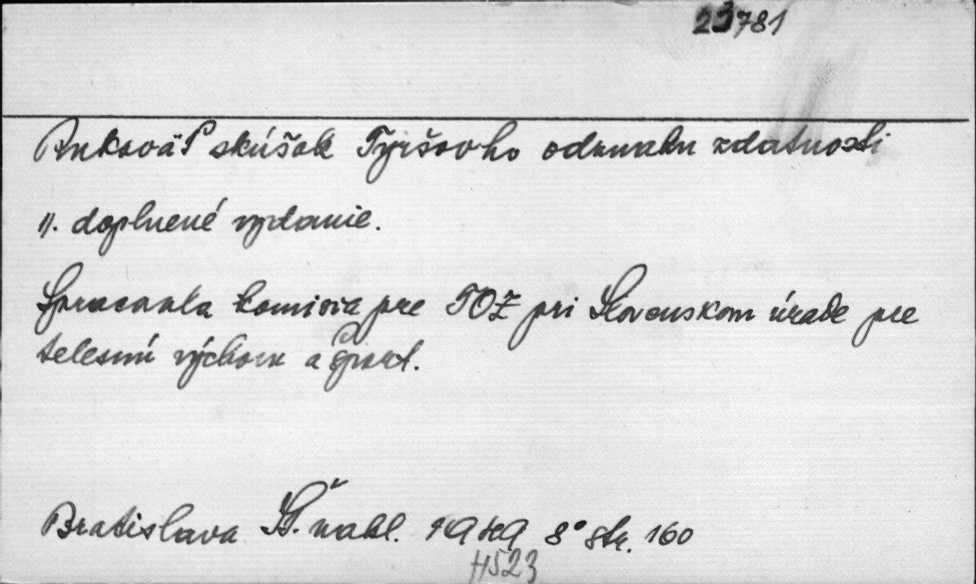 23781
Rukoväť skúšok Tyršovho odznaku zdatnosti
II. doplnené vydanie.
Spracovala komisia pre TOZ pri Slovenskom úrade pre
telesnú výchovu a šport.
Bratislava Št. nakl. 1949 8° str. 160
H523